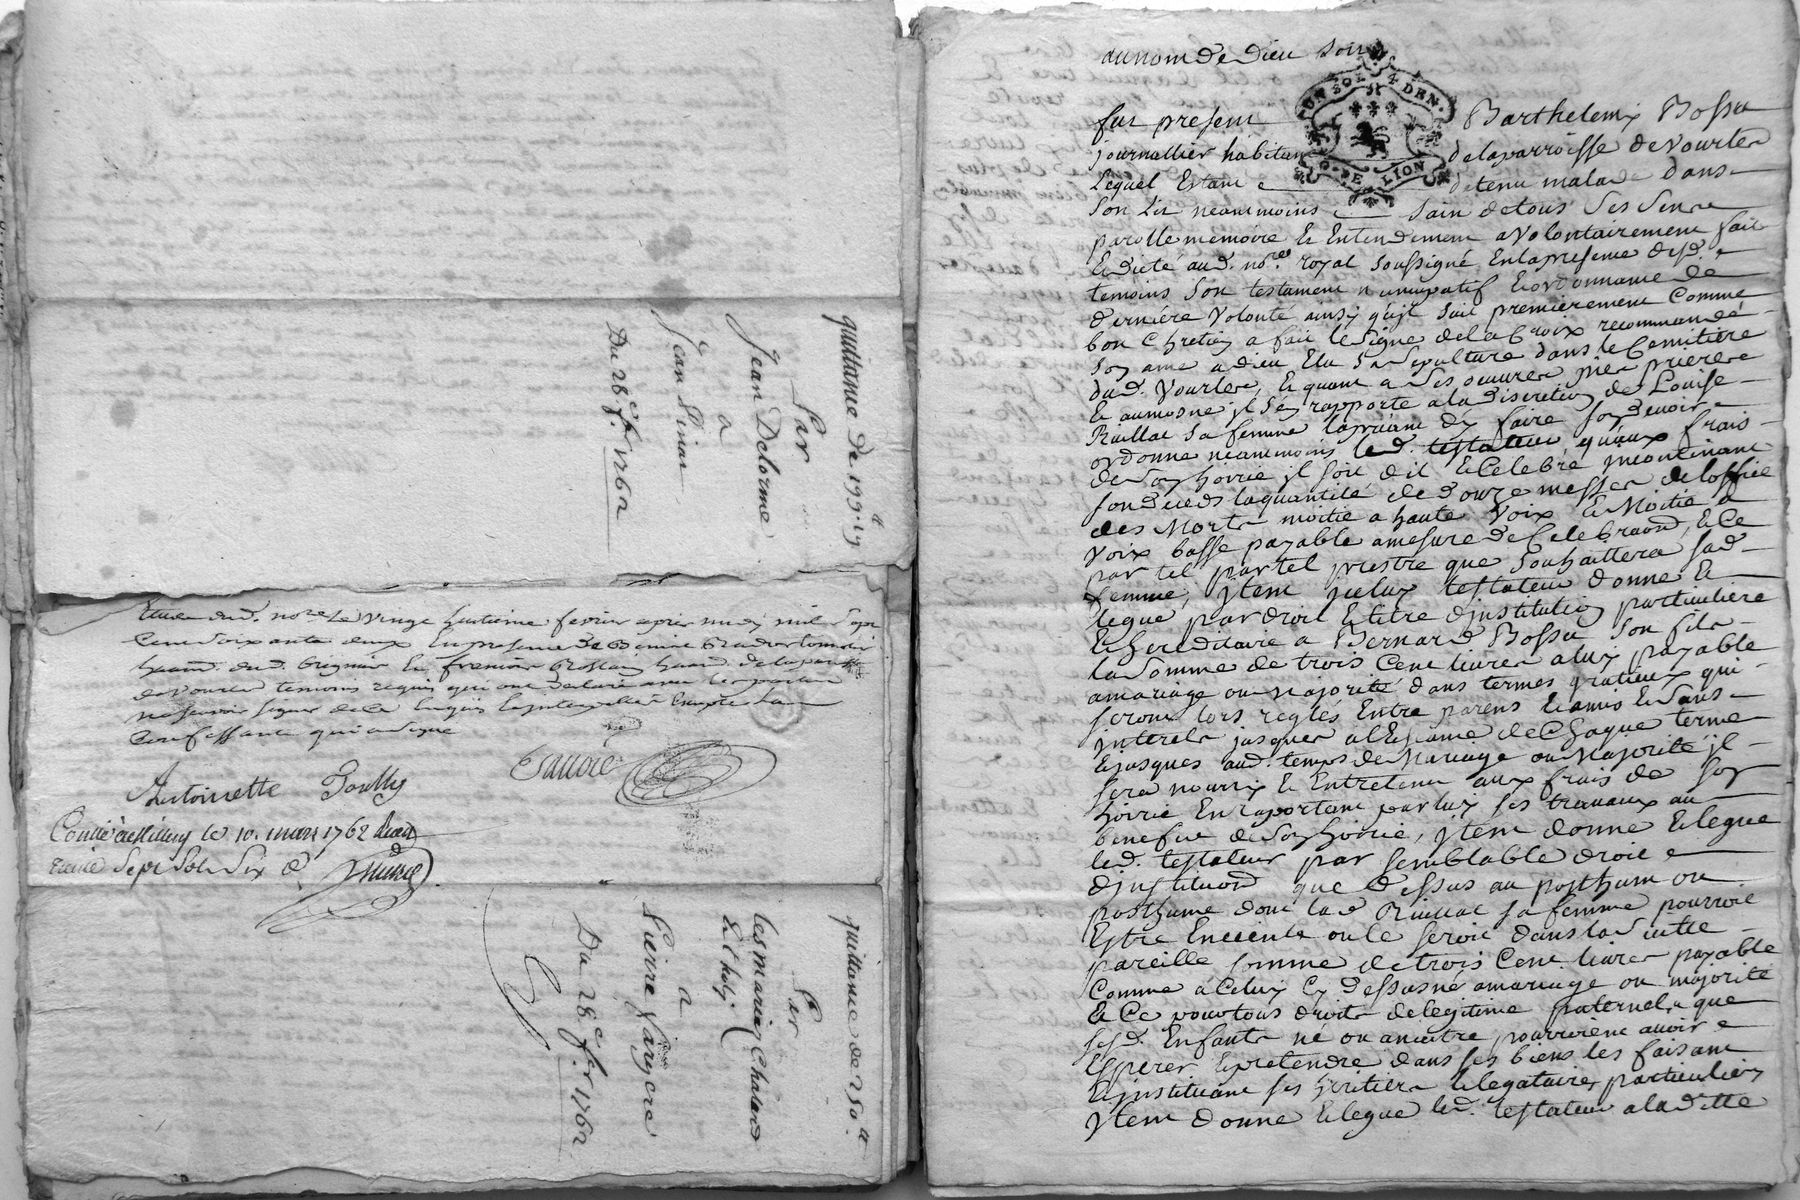 quittance de 199
Par
Jean Delorme
a
Jean Pinar
Du 28e f.r 1762
Etude dud. nore le vingt huitieme fevrier apres midy mil sept
Cent soixante deux En presence de
temoins requis qui ont declaré avec les parties
ne scavoir signer de ce Enquis
Confessante qui a signé
Antoinette
Conllé à Millery le 10. mars 1762 Reçu
treize Sept Sols Six d
quittance de 250
Par
les mariés Chaland
a
Pierre Largere
Du 28e f.r 1762
au nom de Dieu soit
UN SOL 4 DEN.
G. DE LION
fut present Barthelemy Bossu
journallier habitant de la parroisse de Vourles
Lequel Estant detenu malade dans
Son Lit neantmoins sain de tous Ses Sens
parolle memoire Et Entendement a Volontairement fait
Et dicté aud. nore royal soussigné En la presence desd.
temoins Son testament nuncupatif Et ordonnance de
derniére Volonté ainsy qu'il suit premierement Comme
bon Chretien a fait le Signe de la Croix recommandé
Son ame a dieu Et a Sa Sepulture dans le Cemitiére
dud. Vourles, Et quant a Ses oeuvres pies prieres
Et aumosne il s'en rapporte a la discretion de Louise
Raillat Sa femme la priant d'en faire son devoir
ordonne neantmoins led. testateur qu'aux frais
de Son hoirie il soit dit Et Celebré incontinant
son deceds la quantité de douze messes de loffice
des Morts moitié a haute Voix Et Moitié a
Voix basse payable a mesure de Celebraon, Et Ce
par tel prestre que Souhaittera sad.
femme, Item iceluy testateur donne Et
legue par droit Et titre d'institution particuliére
Et hereditaire a Bernard Bossu Son fils
la Somme de trois Cent livres a luy payable
a mariage ou Majorité dans termes gratieux qui
seront lors reglés Entre parens Et amis Et Sans
interets jusques a l'Echéance de Chaque terme
Et jusques aud. temps de Mariage ou Majorité il
sera nourry Et Entretenu aux frais de Son
hoirie En raportant par luy ses travaux au
benefice de Son hoirie, Item donne Et legue
led. testateur par semblable droit
d'instituaon que Dessus au posthum ou
posthume dont lad. Raillat sa femme pourroit
Estre Enceinte ou le seroit dans la Suitte
pareille somme de trois Cent livres payable
Comme a Celuy Cy Dessus né a mariage ou majorité
Et Ce pour tous droits de legitime paternels que
sesd. Enfants né ou a naitre pourroient avoir
Esperer Et pretendre dans ses biens les faisant
Et instituant ses heritiers Et legataires particuliers
Item donne Et legue led. testateur a laditte